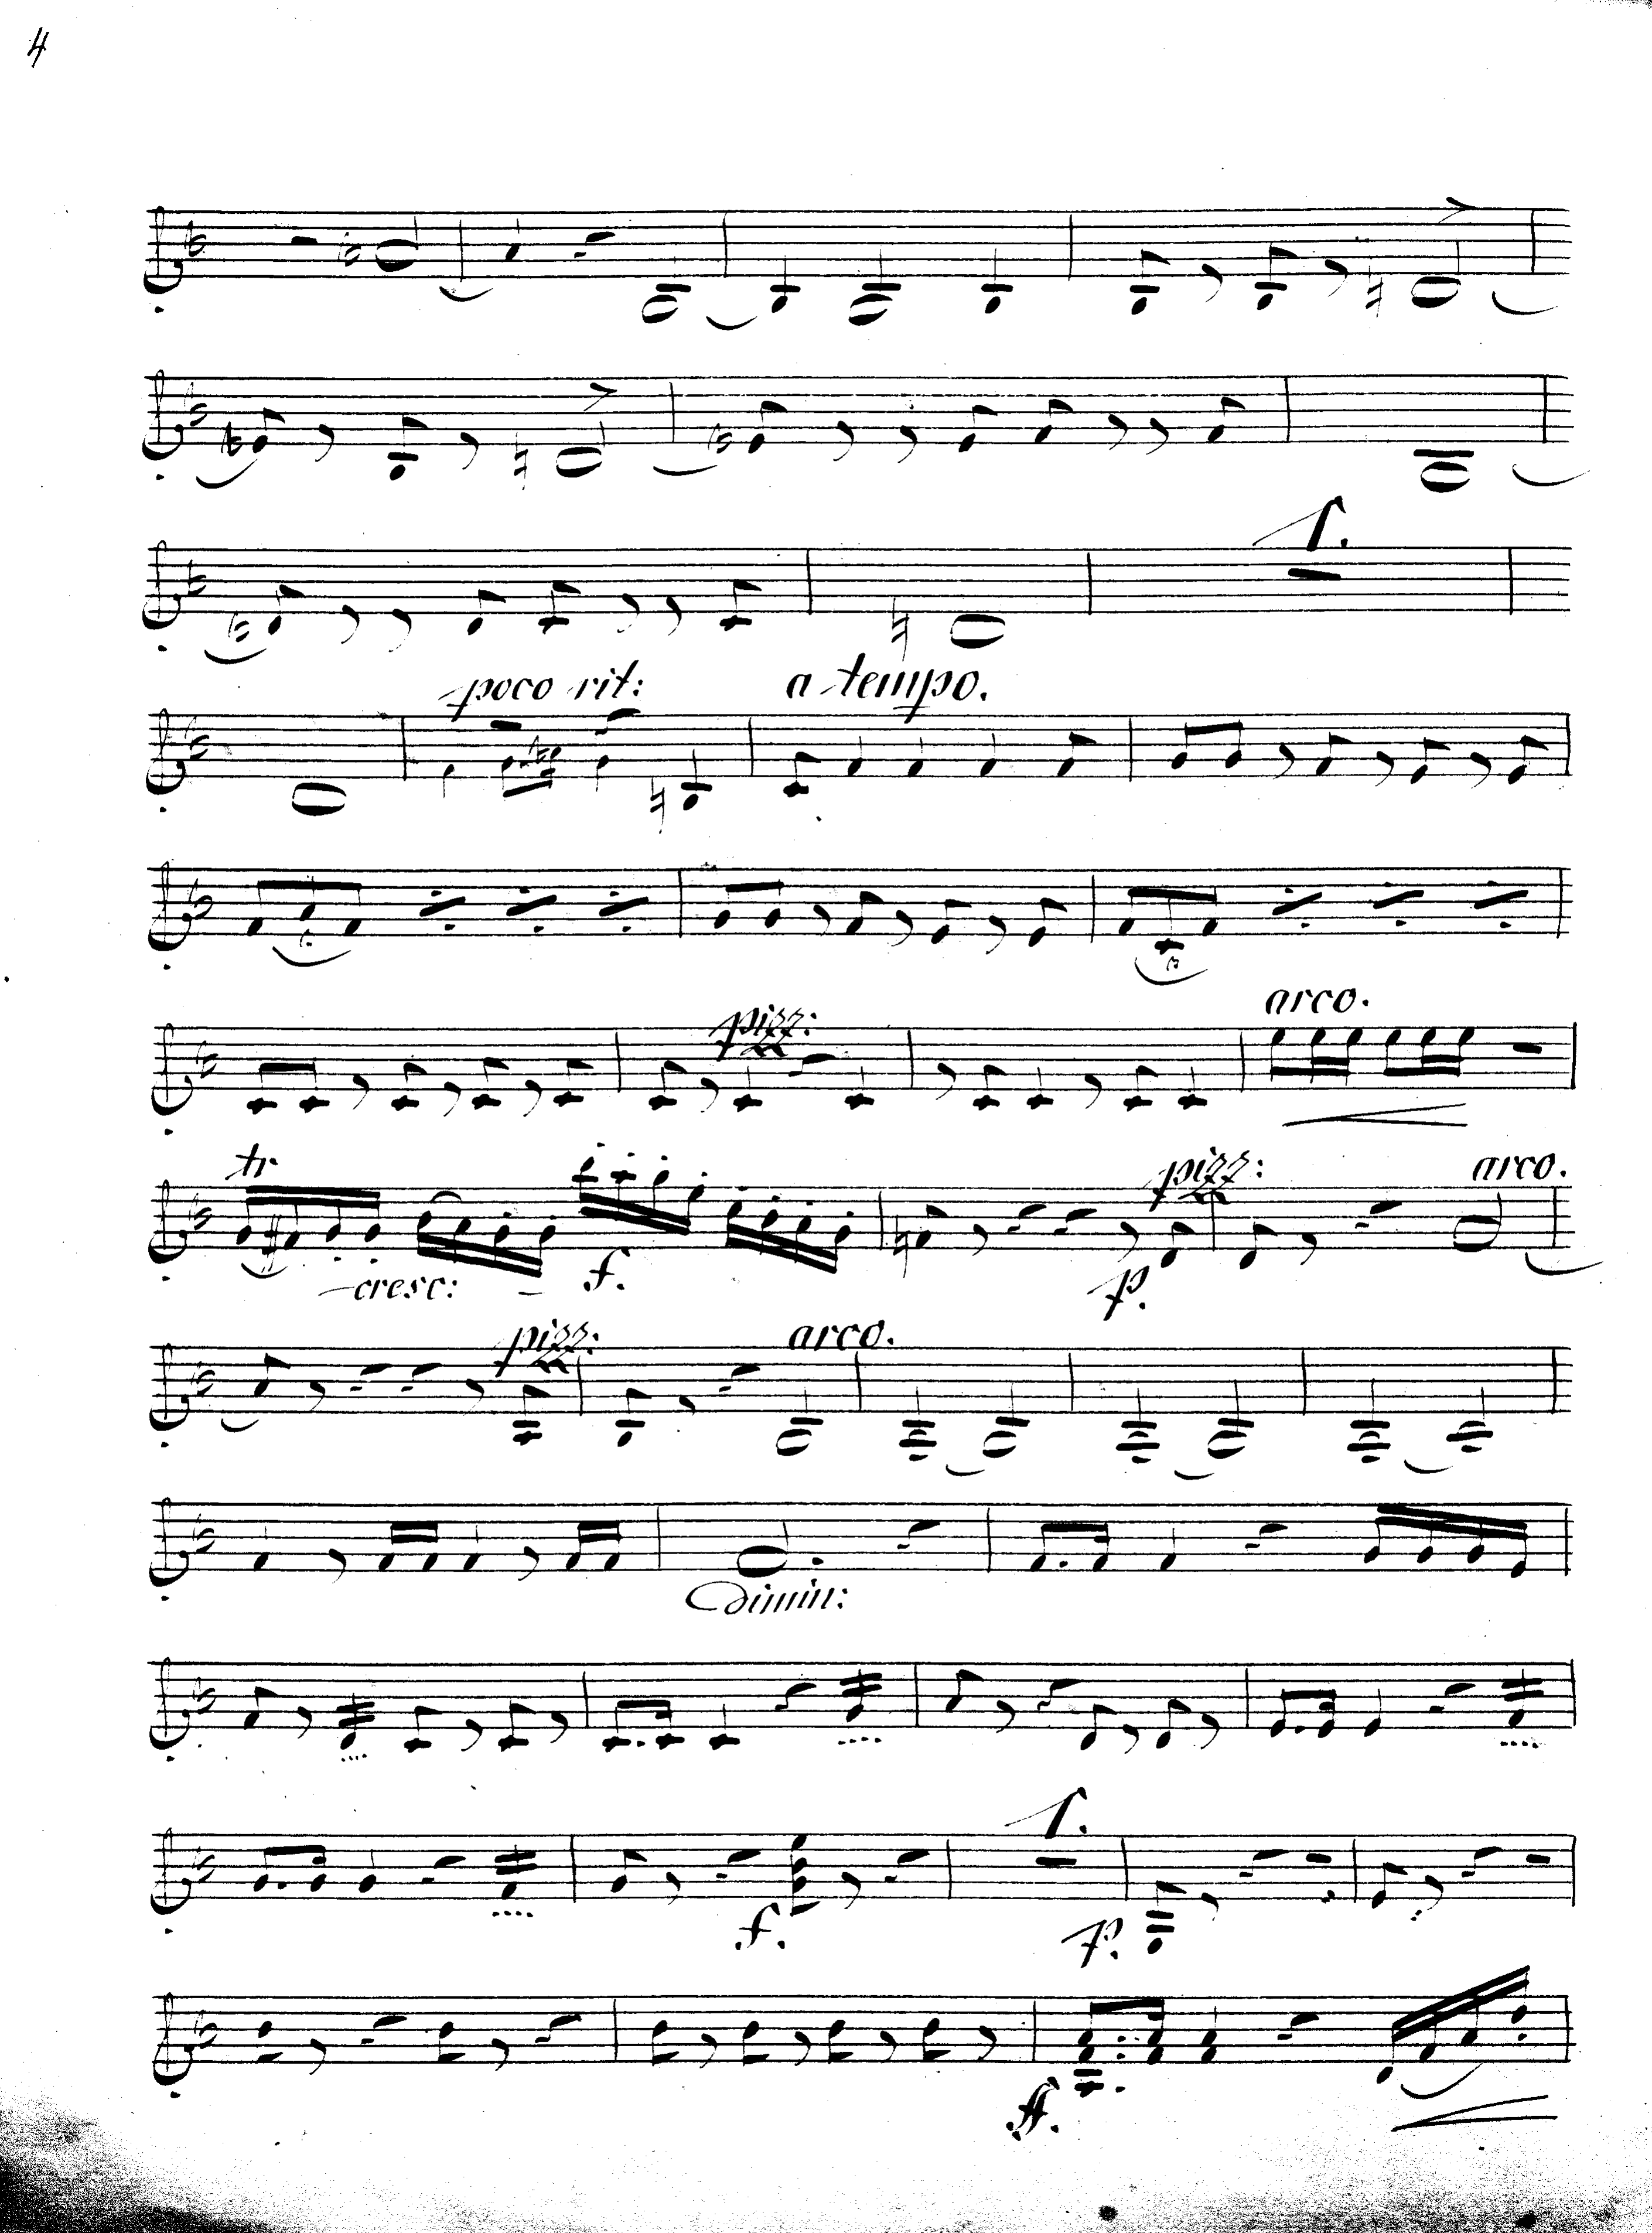 4
1.
poco rit: a tempo.
pizz: arco.
tr cresc: f. p. pizz: arco.
pizz: arco.
Dimin:
1.
f. p.
ff.